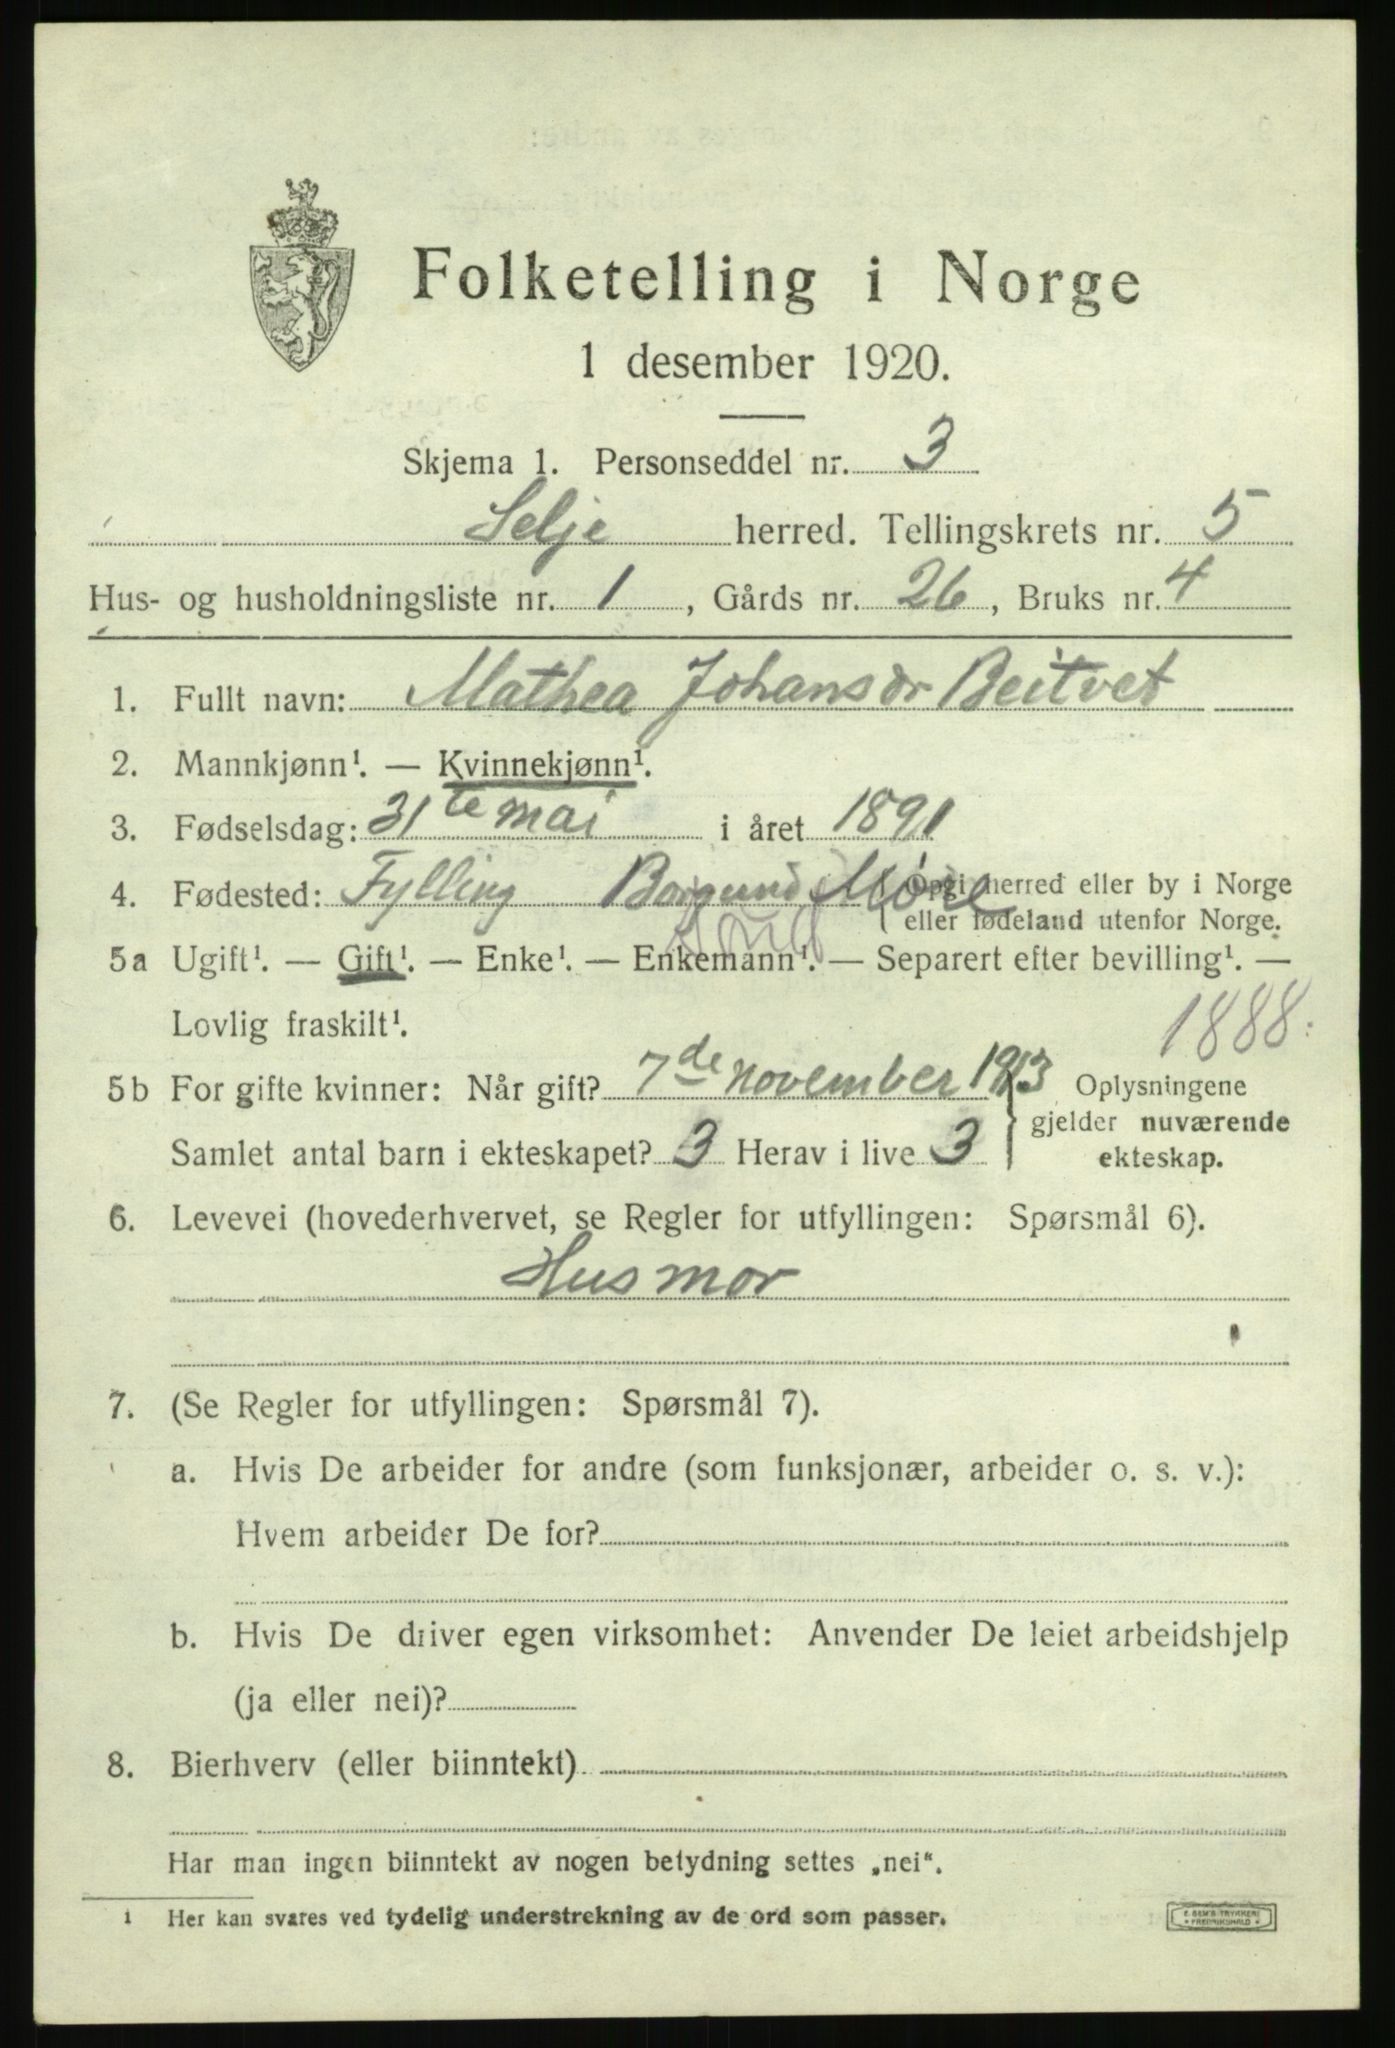 Folketelling i Norge
1 desember 1920.
Skjema 1. Personseddel nr. 3
Selje herred. Tellingskrets nr. 5
Hus- og husholdningsliste nr. 1, Gårds nr. 26, Bruks nr. 4
1. Fullt navn: Mathea Johansdr Beitvet
2. Mannkjønn¹. — Kvinnekjønn¹.
3. Fødselsdag: 31te mai i året 1891
4. Fødested: Fylling Borgund Møre (Opgi herred eller by i Norge
eller fødeland utenfor Norge.
5a Ugift¹. — Gift¹. — Enke¹. — Enkemann¹. — Separert efter bevilling¹. —
Lovlig fraskilt¹.
1888.
5b For gifte kvinner: Når gift? 7de november 1913 Oplysningene
gjelder nuværende
Samlet antal barn i ekteskapet? 3 Herav i live 3 ekteskap.
6. Levevei (hovederhvervet, se Regler for utfyllingen: Spørsmål 6).
Husmor
7. (Se Regler for utfyllingen: Spørsmål 7).
a. Hvis De arbeider for andre (som funksjonær, arbeider o. s. v.):
Hvem arbeider De for?
b. Hvis De driver egen virksomhet: Anvender De leiet arbeidshjelp
(ja eller nei)?
8. Bierhverv (eller biinntekt)
Har man ingen biinntekt av nogen betydning settes „nei“.
1 Her kan svares ved tydelig understrekning av de ord som passer.
E. SEM'S TRYKKERI
FREDRIKSHALD